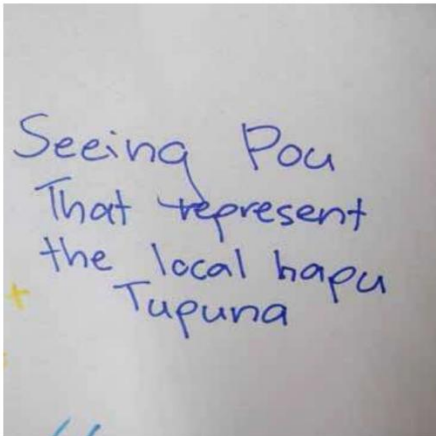 Seeing Pou
That represent
the local hapu
Tupuna